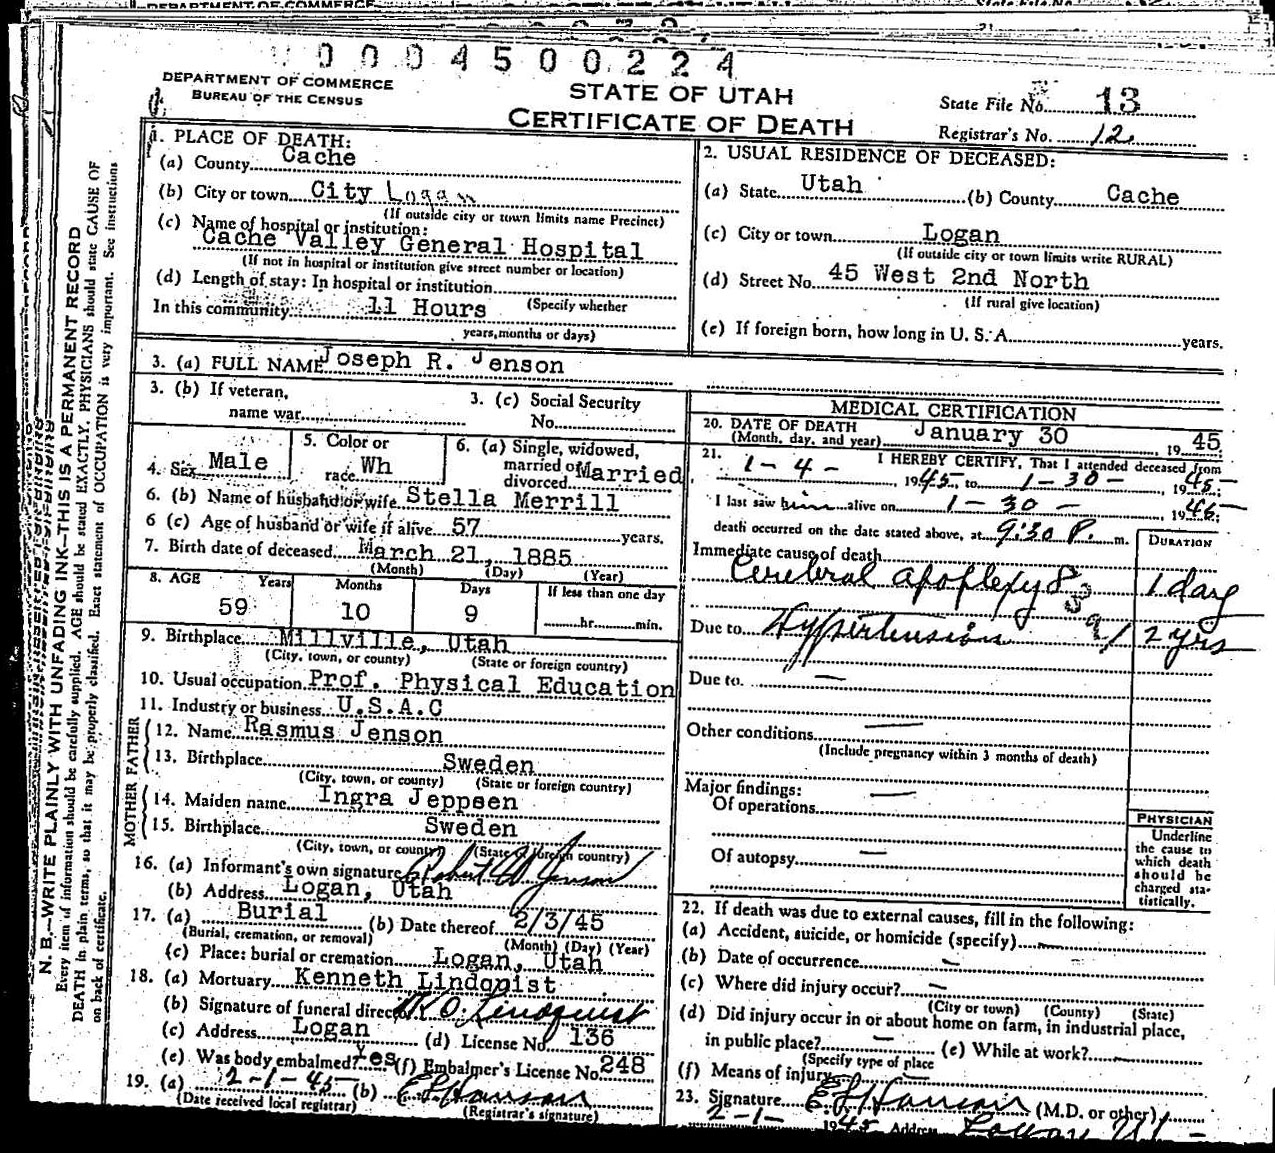 0004500224
DEPARTMENT OF COMMERCE
BUREAU OF THE CENSUS
STATE OF UTAH
CERTIFICATE OF DEATH
State File No. 13
Registrar's No. 12
N. B.—WRITE PLAINLY WITH UNFADING INK—THIS IS A PERMANENT RECORD
Every item of information should be carefully supplied. AGE should be stated EXACTLY. PHYSICIANS should state CAUSE OF
DEATH in plain terms, so that it may be properly classified. Exact statement of OCCUPATION is very important. See instructions
on back of certificate.
1. PLACE OF DEATH:
(a) County Cache
(b) City or town City Logan
(If outside city or town limits name Precinct)
(c) Name of hospital or institution:
Cache Valley General Hospital
(If not in hospital or institution give street number or location)
(d) Length of stay: In hospital or institution
(Specify whether
In this community 11 Hours
years, months or days)
2. USUAL RESIDENCE OF DECEASED:
(a) State Utah (b) County Cache
(c) City or town Logan
(If outside city or town limits write RURAL)
(d) Street No. 45 West 2nd North
(If rural give location)
(e) If foreign born, how long in U. S. A. years.
3. (a) FULL NAME Joseph R. Jenson
3. (b) If veteran,
name war
3. (c) Social Security
No.
4. Sex Male
5. Color or
race Wh
6. (a) Single, widowed,
married or Married
divorced
6. (b) Name of husband or wife Stella Merrill
6 (c) Age of husband or wife if alive 57 years.
7. Birth date of deceased March 21, 1885
(Month) (Day) (Year)
8. AGE Years Months Days If less than one day
59 10 9 hr. min.
9. Birthplace Millville, Utah
(City, town, or county) (State or foreign country)
10. Usual occupation Prof. Physical Education
11. Industry or business U.S.A.C
FATHER
12. Name Rasmus Jenson
13. Birthplace Sweden
(City, town, or county) (State or foreign country)
MOTHER
14. Maiden name Ingra Jeppsen
15. Birthplace Sweden
(City, town, or county) (State or foreign country)
16. (a) Informant's own signature Robert W Jenson
(b) Address Logan, Utah
17. (a) Burial (b) Date thereof 2/3/45
(Burial, cremation, or removal) (Month) (Day) (Year)
(c) Place: burial or cremation Logan, Utah
18. (a) Mortuary Kenneth Lindquist
(b) Signature of funeral director K O Lindquist
(c) Address Logan (d) License No. 136
(e) Was body embalmed? Yes (f) Embalmer's License No. 248
19. (a) 2-1-45 (b) E L Hanson
(Date received local registrar) (Registrar's signature)
MEDICAL CERTIFICATION
20. DATE OF DEATH
(Month, day, and year) January 30 1945
21. I HEREBY CERTIFY, That I attended deceased from
1-4- 1945, to 1-30- , 1945;
I last saw him alive on 1-30- 1945;
death occurred on the date stated above, at 9:30 P. m.
DURATION
Immediate cause of death
Cerebral apoplexy 1 day
Due to Hypertension 2 yrs
Due to —
Other conditions —
(Include pregnancy within 3 months of death)
Major findings:
Of operations —
Of autopsy —
PHYSICIAN
Underline
the cause to
which death
should be
charged sta-
tistically.
22. If death was due to external causes, fill in the following:
(a) Accident, suicide, or homicide (specify) —
(b) Date of occurrence —
(c) Where did injury occur? —
(City or town) (County) (State)
(d) Did injury occur in or about home on farm, in industrial place,
in public place? — (e) While at work? —
(Specify type of place
(f) Means of injury —
23. Signature E L Hanson (M.D. or other)
2-1- 1945 Address Logan Ut -